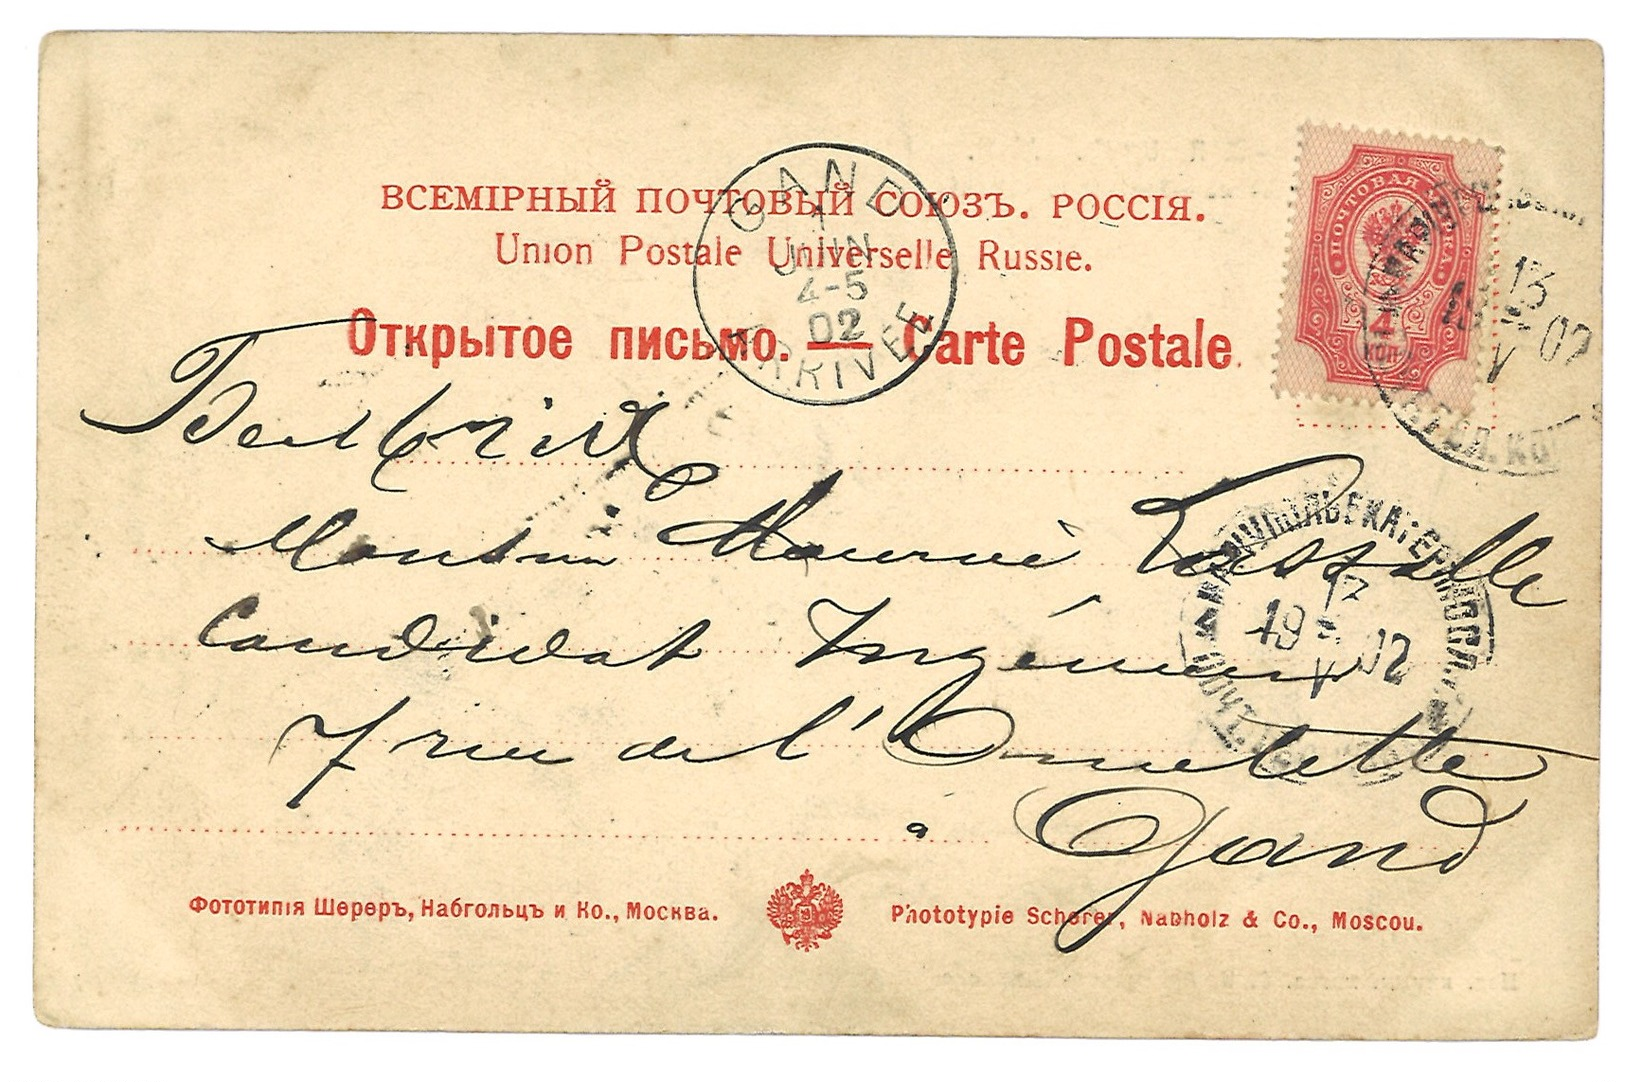 ВСЕМІРНЫЙ ПОЧТОВЫЙ СОЮЗЪ. РОССІЯ.
Union Postale Universelle Russie.
Открытое письмо. — Carte Postale
GAND
1
JUIN
4-5
02
ARRIVEE
ПОЧТОВАЯ МАРКА
4
КОП.
13
V
02
Бельгія
Monsieur Maurice
Candidat Ingénieur
7 rue de l'Omelette
à Gand
МАРІУПОЛЬ ЕКАТЕРИНОСЛ.
19 V 02
Фототипія Шереръ, Набгольцъ и Ко., Москва.
Phototypie Scherer, Nabholz & Co., Moscou.